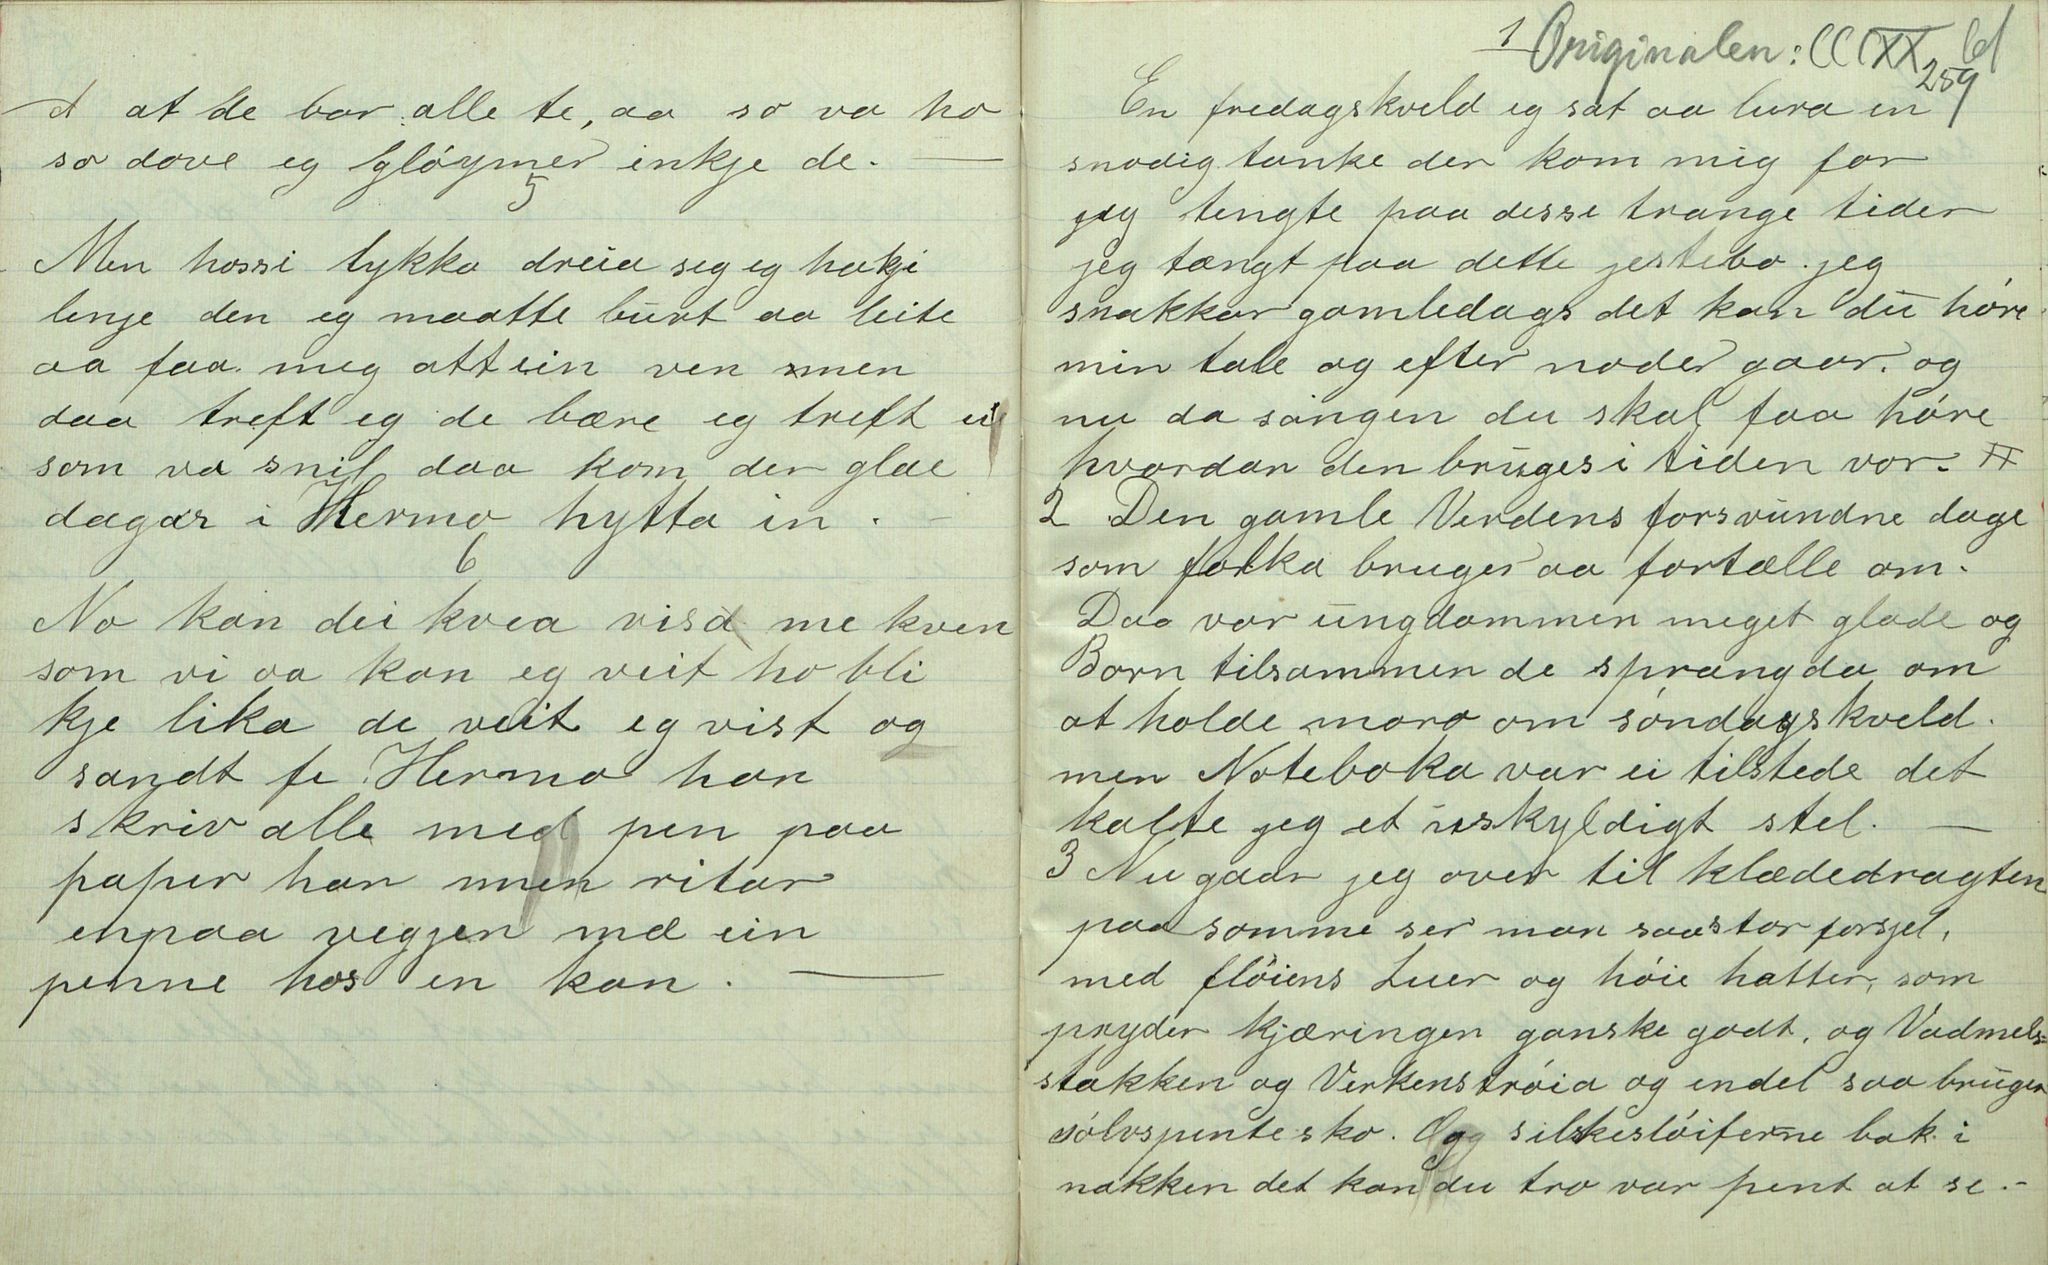 at de bar alle te, aa so va ho
so dove eg gløymer inkje de. —
5
Men hossi lykka dreia seg eg hakji
lenje den eg maatte burt aa leite
aa faa meg att ein ven men
daa treft eg de bære eg treft ei
som va snil daa kom der glae
dagar i Hermo hytta in. -
6
No kan dei kvea visa me kven
som vi aa kan eg veit ho bli
kje lika de veit eg vist og
sandt fe Hermo han
skriv alle med pen paa
paper han men ritar
enpaa vegjen md ein
penne hos en kan. —
1 Originalen: CCCXX
259
En fredagskveld eg sat aa lura en
snodig tanke der kom mig for
jeg tengte paa desse trange tider
jeg tængt paa dette jestebo. jeg
snakkar gamledags det kan du høre
min tale og efter noder gaar. og
nu da sangen du skal faa høre
hvordan den bruges i tiden vor. #
2 Den gamle Verdens forsvundne dage
som folka bruger aa fortælle om.
Daa var ungdommen meget glade og
Born tilsammen de sprang da om
at holde moro om søndagskveld.
men Noteboka var ei tilstede det
kalte jeg et uskyldigt stel. —
3 Nu gaar jeg over til klædedragten
paa somme ser man saa stor forsjel,
med fløiens Luer og høie hatter, som
pryder kjæringen ganske godt, og Vadmels=
stakken og Verkenstrøia og endel saa bruger
sølvspente sko. Og silkesløiferne bak i
nakken det kan du tro var pent at se.-